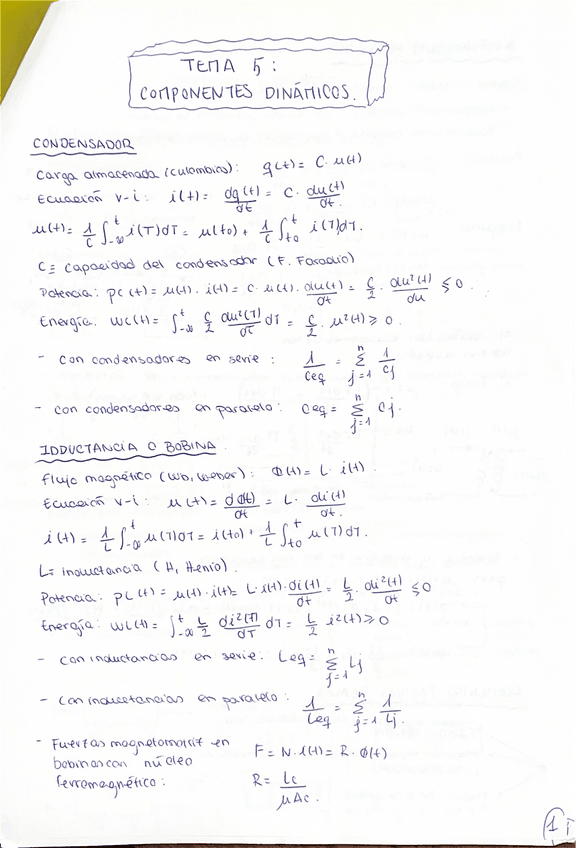 TEMA 5:
COMPONENTES DINÁMICOS.
CONDENSADOR
Carga almacenada (culombios): q(t) = C · u(t)
Ecuación v-i: i(t) = dq(t)/dt = C · du(t)/dt.
u(t) = 1/C ∫_{-∞}^{t} i(T)dT = u(t0) + 1/C ∫_{t0}^{t} i(T)dT.
C = capacidad del condensador (F. Faradio)
Potencia: pc(t) = u(t) · i(t) = C · u(t) · du(t)/dt = C/2 · du²(t)/du ≶ 0.
Energía: wc(t) = ∫_{-∞}^{t} C/2 du²(T)/dT dT = C/2 · u²(t) ≥ 0.
- Con condensadores en serie: 1/Ceq = Σ_{j=1}^{n} 1/Cj
- Con condensadores en paralelo: Ceq = Σ_{j=1}^{n} Cj.
IDDUCTANCIA O BOBINA.
Flujo magnético (Wb, weber): Φ(t) = L · i(t).
Ecuación v-i: u(t) = dΦ(t)/dt = L · di(t)/dt.
i(t) = 1/L ∫_{-∞}^{t} u(T)dT = i(t0) + 1/L ∫_{t0}^{t} u(T)dT.
L = inductancia (H, Henio).
Potencia: pL(t) = u(t) · i(t) = L · i(t) · di(t)/dt = L/2 · di²(t)/dt ≶ 0
Energía: wL(t) = ∫_{-∞}^{t} L/2 di²(T)/dT dT = L/2 i²(t) ≥ 0
- Con inductancias en serie: Leq = Σ_{j=1}^{n} Lj
- Con inductancias en paralelo: 1/Leq = Σ_{j=1}^{n} 1/Lj.
- Fuerzas magnetomotriz en
bobinas con núcleo
ferromagnético:
F = N · i(t) = R · Φ(t)
R = Lc/μAc.
1